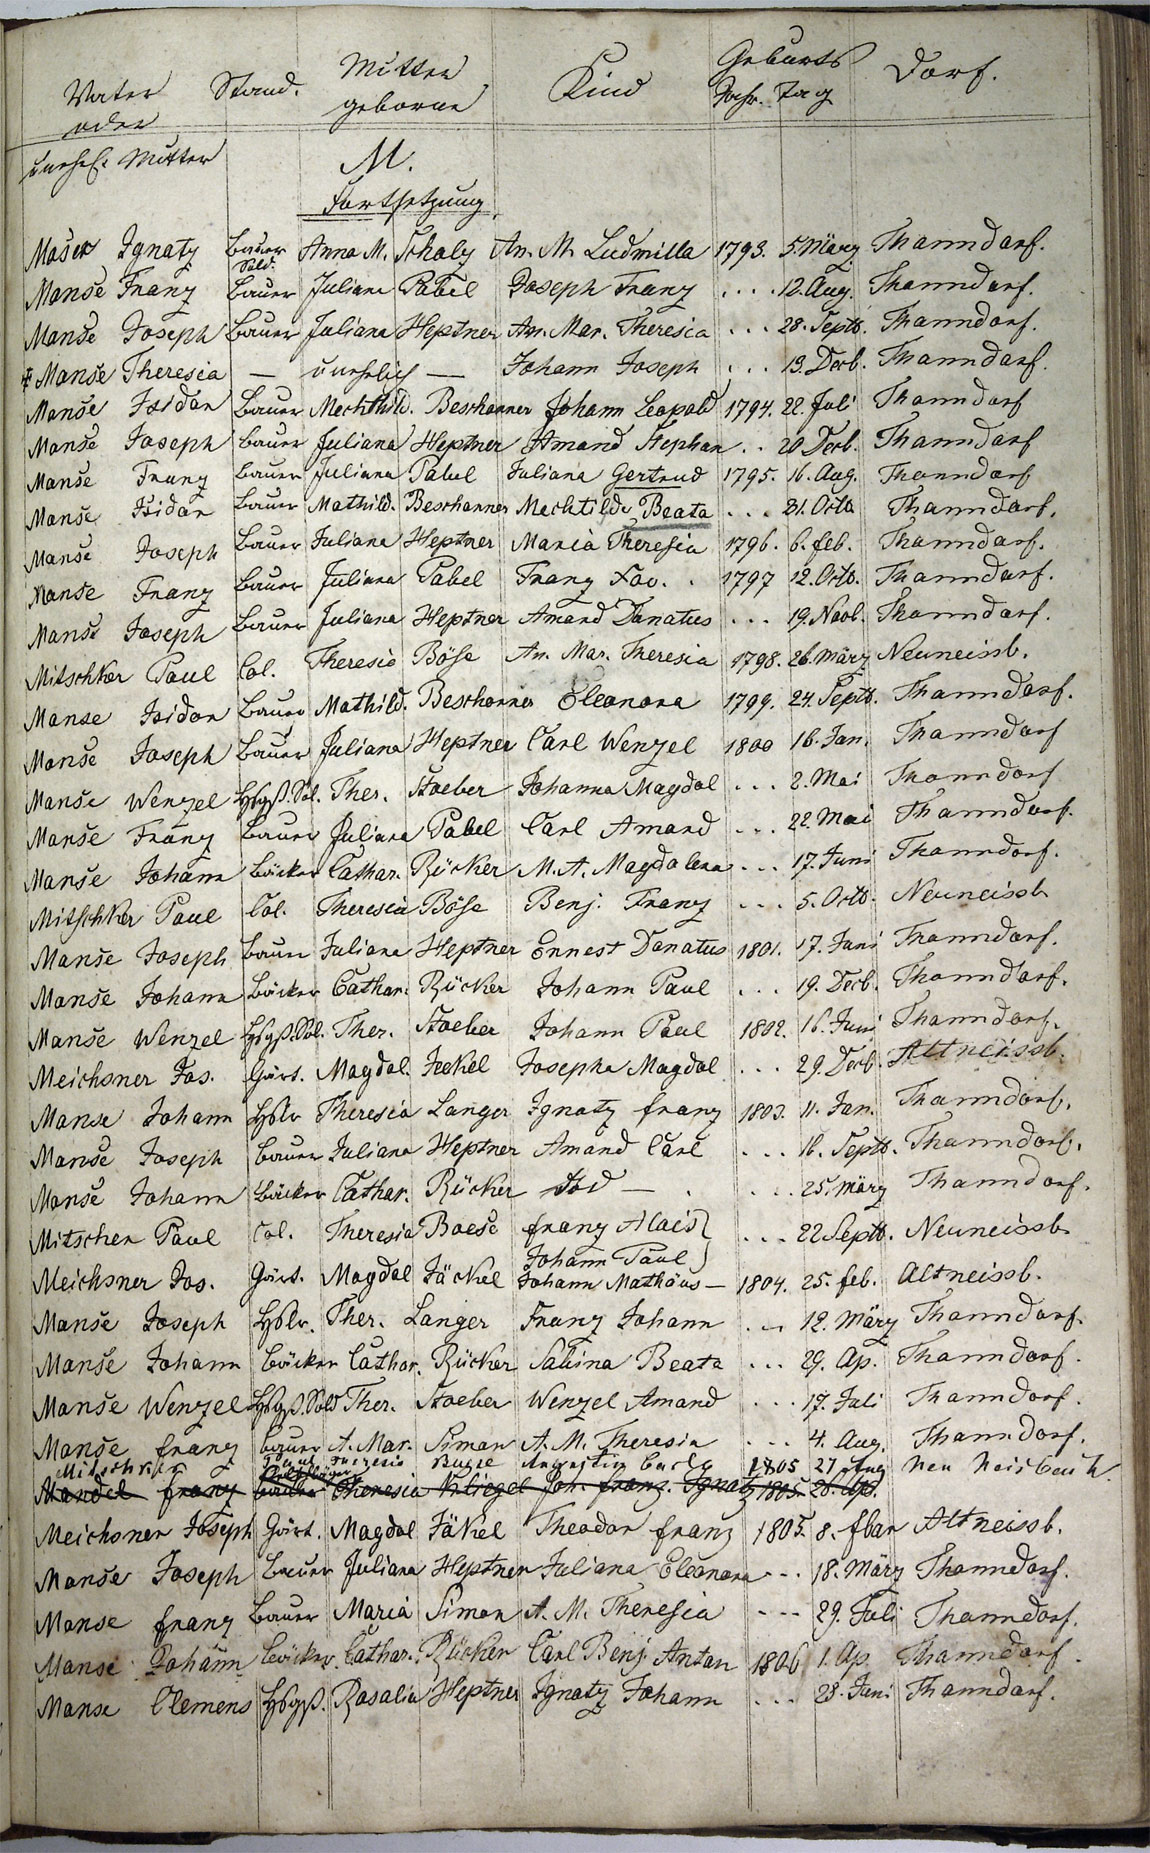 Vater oder unehl. Mutter Stand. Mutter geborne Kind Geburts Jahr. Tag Dorf.
M.
Fortsetzung
Moser Ignatz Bauer Anna M. Schaly An. M. Ludmilla 1793. 5. März Thanndorf.
Sold.
Manse Franz Bauer Juliana Pabel Joseph Franz . . . 12. Aug. Thanndorf.
Manse Joseph Bauer Juliana Heptner An. Mar. Theresia . . . 28. Septb. Thanndorf.
Manse Theresia — unehelich — Johann Joseph . . . 13. Decb. Thanndorf.
Manse Isidor Bauer Mechthild. Beschorner Johann Leopold 1794. 22. Juli Thanndorf
Manse Joseph Bauer Juliana Heptner Amand Stephan . . 20 Decb. Thanndorf
Manse Franz Bauer Juliana Pabel Juliana Gertrud 1795. 16. Aug. Thanndorf
Manse Isidor Bauer Mathild. Beschorner Mechtilde Beata . . . 31. Octb Thanndorf.
Manse Joseph Bauer Juliana Heptner Maria Theresia 1796. 6. feb. Thanndorf.
Manse Franz Bauer Juliana Pabel Franz Xav. . 1797 12. Octb. Thanndorf.
Manse Joseph Bauer Juliana Heptner Amand Donatus . . . 19. Novb. Thanndorf.
Mitschker Paul Col. Theresia Böse An. Mar. Theresia 1798. 26. März Neuneissb.
Manse Isidor Bauer Mathild. Beschorner Eleonora 1799. 24. Septb. Thanndorf.
Manse Joseph Bauer Juliana Heptner Carl Wenzel 1800 16. Jan. Thanndorf
Manse Wenzel Hsgß. Sol. Ther. Stoeber Johanna Magdal . . . 2. Mai Thanndorf
Manse Franz Bauer Juliana Pabel Carl Amand . . . 22. Mai Thanndorf.
Manse Johann Bäcker Cathar. Rücker M. A. Magdalena . . . 17. Juni Thanndorf.
Mitschker Paul Col. Theresia Böse Benj. Franz . . . 5. Octb. Neuneissb
Manse Joseph Bauer Juliana Heptner Ernest Donatus 1801. 17. Juni Thanndorf.
Manse Johann Bäcker Cathar. Rücker Johann Paul . . . 19. Decb. Thanndorf.
Manse Wenzel Hsgß. Sol. Ther. Stoeber Johann Paul 1802. 16. Juni Thanndorf.
Meichsner Jos. Gärt. Magdal. Jeckel Josepha Magdal . . . 29. Decb. Altneissb.
Manse Johann Hslr Theresia Langer Ignatz franz 1803. 11. Jan. Thanndorf.
Manse Joseph Bauer Juliana Heptner Amand Carl . . . 16. Septb. Thanndorf.
Manse Johann Bäcker Cathar. Rücker Tod — . . . . 25. März Thanndorf.
Mitscher Paul Col. Theresia Boese franz Alois . . . 22 Septb. Neuneissb
Johann Paul
Meichsner Jos. Gärt. Magdal Jäckel Johann Mathäus — 1804. 25. feb. Altneissb.
Manse Joseph Hslr. Ther. Langer Franz Johann . . . 12. März Thanndorf.
Manse Johann Bäcker Cathar. Rücker Sabina Beata . . . 29. Ap. Thanndorf.
Manse Wenzel Hsgß. Sold Ther. Stoeber Wenzel Amand . . . 17. Juli Thanndorf.
Manse franz Bauer A. Mar. Simon A. M. Theresia . . . 4. Aug. Thanndorf.
Mitschker Theresia 1805 27 Aug Neu Neisbach.
Mandel franz Theresia Kliegel Joh. franz. Ignatz 1805. 20. Ap.
Meichsner Joseph Gärt. Magdal Jäkel Theodor franz 1805. 8. fbar Altneissb.
Manse Joseph Bauer Juliana Heptner Juliana Eleonora . . . 18. März Thanndorf.
Manse franz Bauer Maria Simon A. M. Theresia . . . 29. Juli Thanndorf.
Manse Johann Bäcker. Cathar. Rücker Carl Benj. Anton 1806 1. Ap. Thanndorf.
Manse Clemens Hsgß. Rosalia Heptner Ignatz Johann . . . 28. Juni Thanndorf.